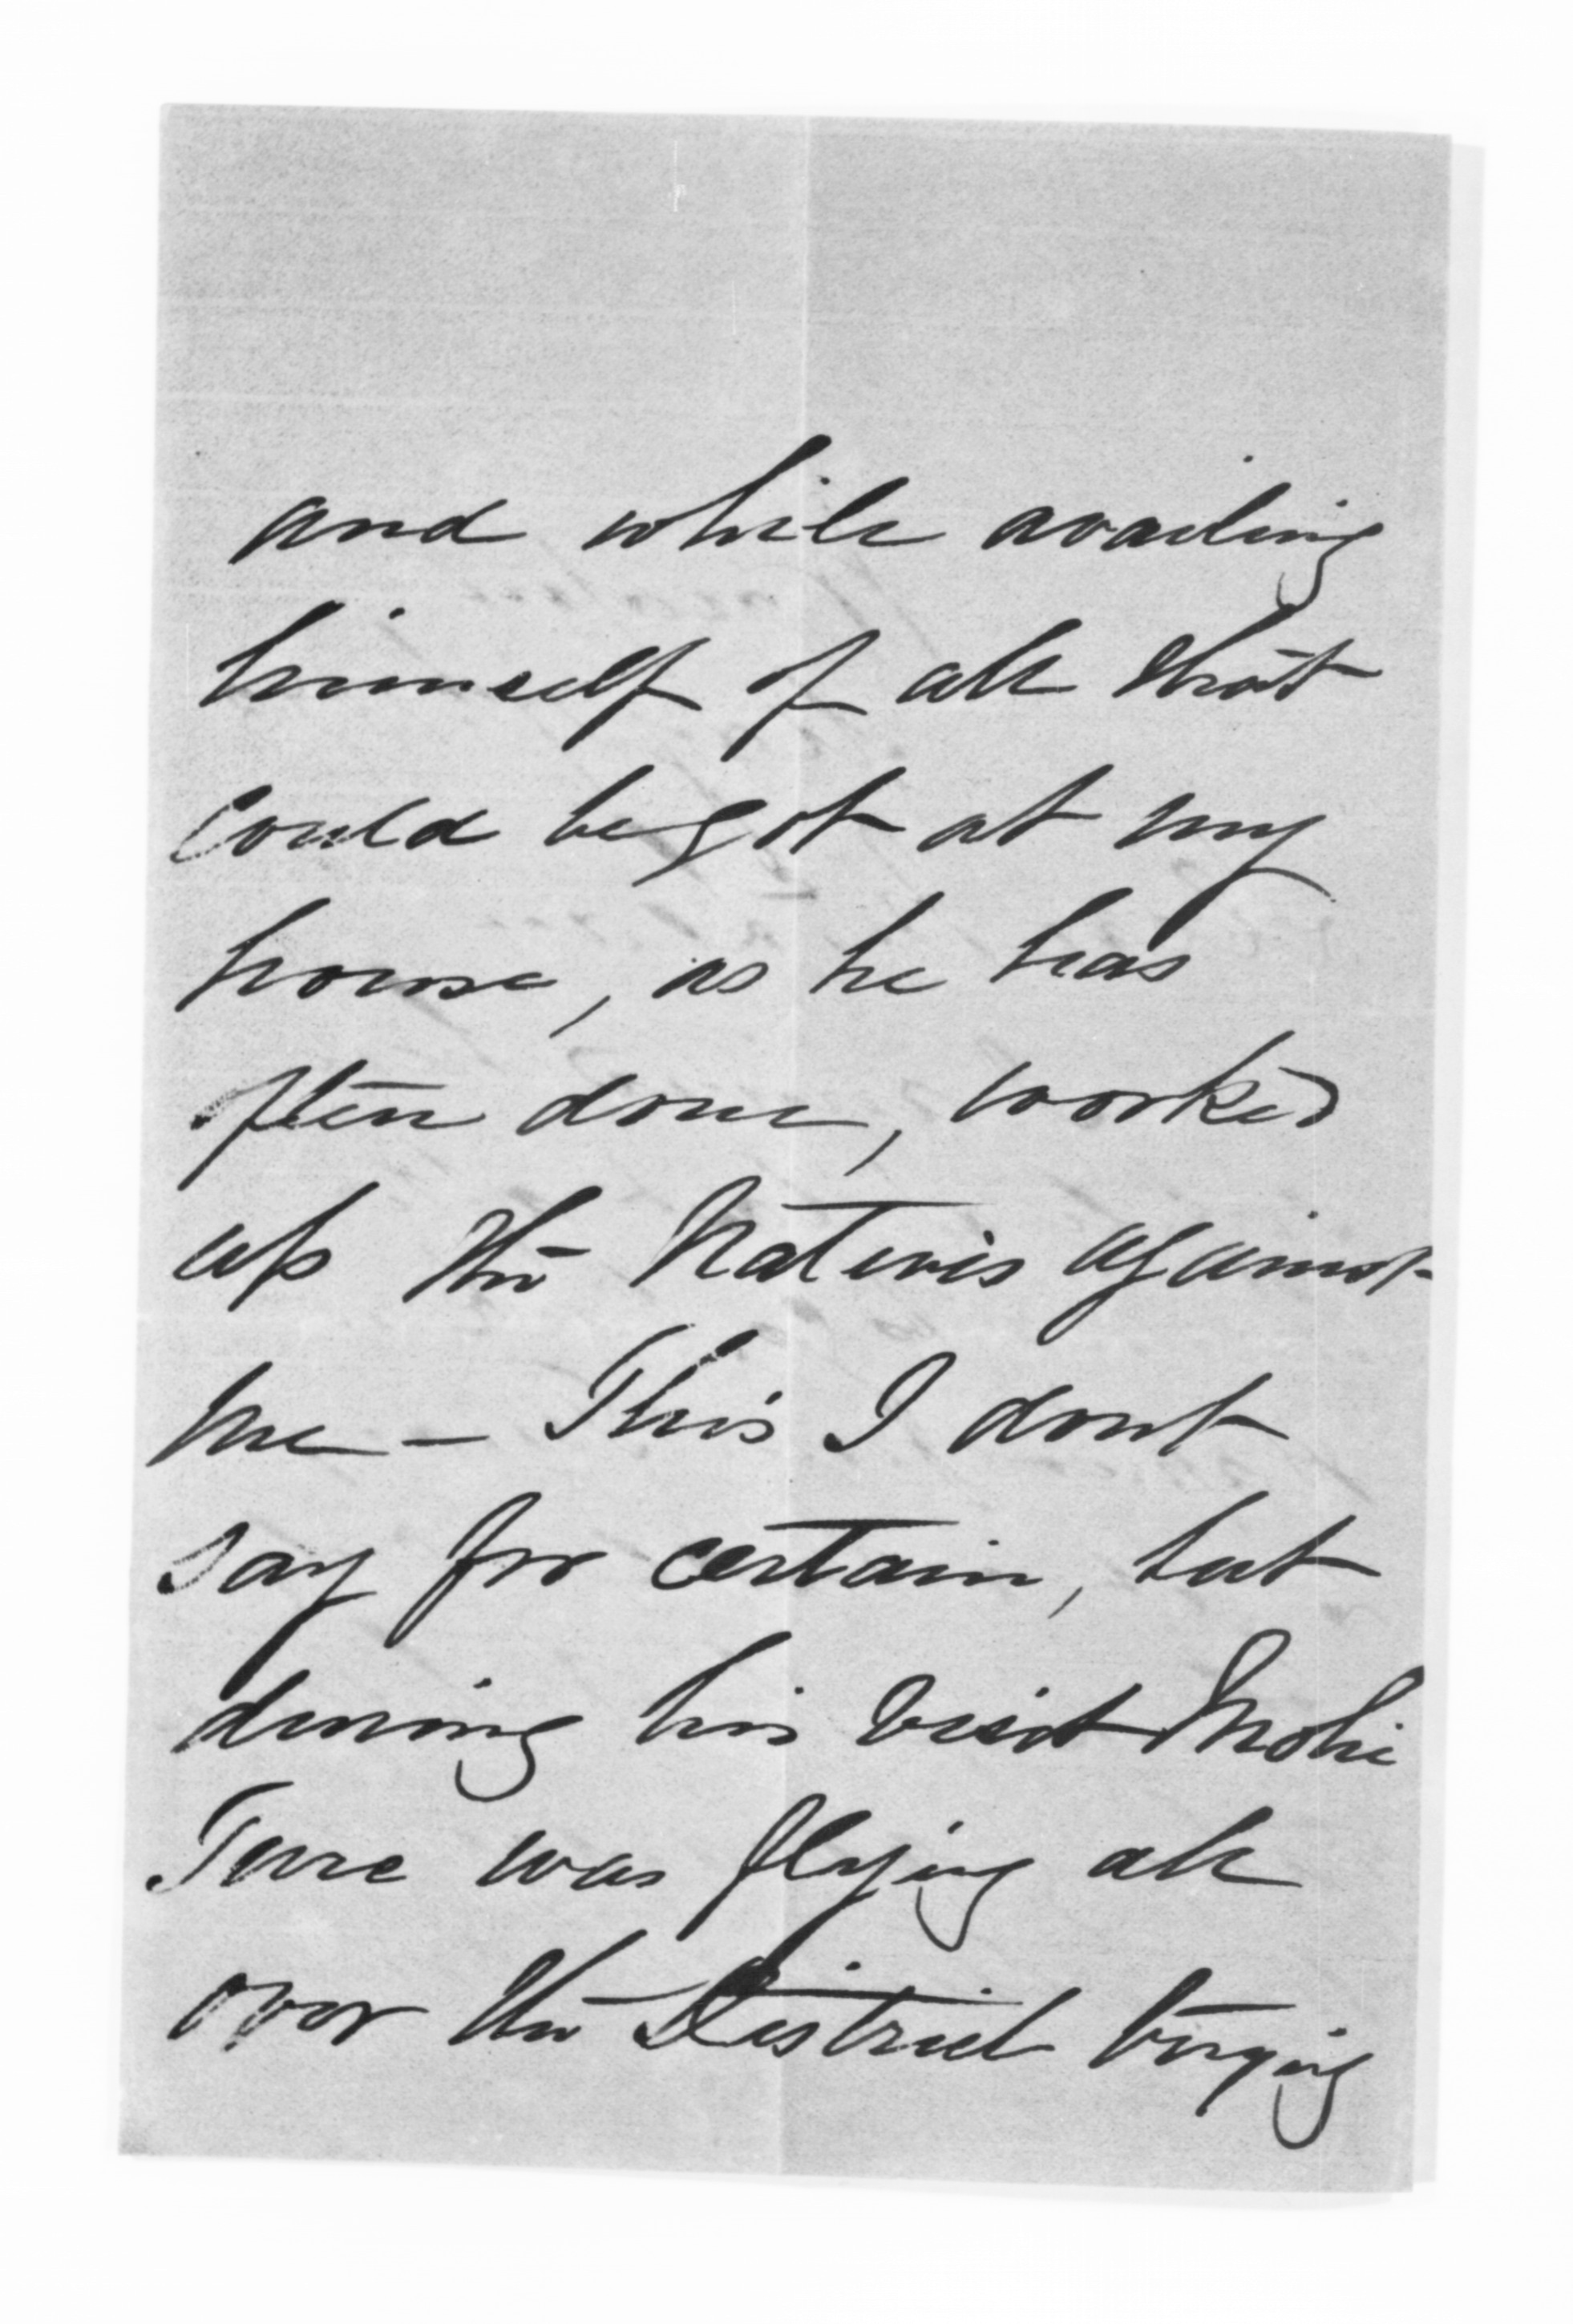 and while availing
himself of all that
could be got at my
house, as he has
often done, worked
up the Natives against
me – This I dont
say for certain, but
during his visit Mohi
Ture was flying all
over the District